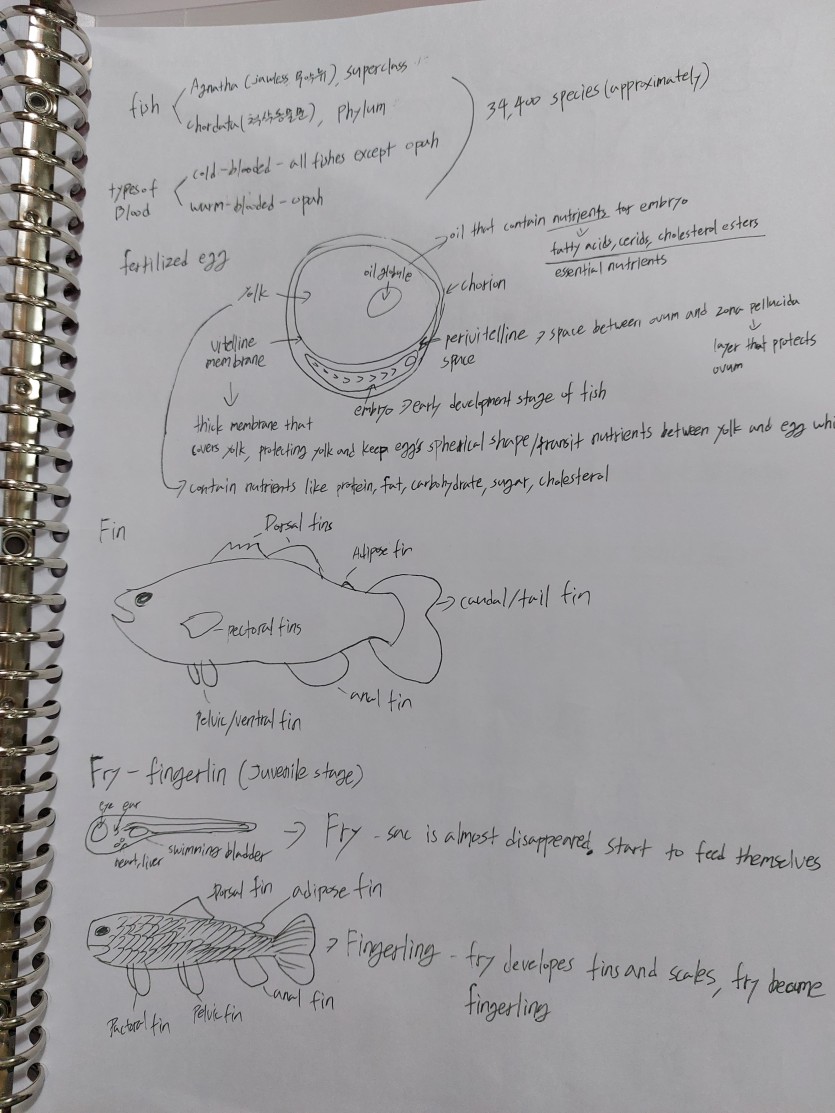 fish
Agnatha (jawless, 무악류), superclass
chordata (척삭동물문), Phylum
34,400 species (approximately)
types of
Blood
cold-blooded - all fishes except opah
warm-blooded - opah
fertilized egg
oil that contain nutrients for embryo
fatty acids, cerids, cholesterol esters
essential nutrients
oil globule
yolk
chorion
vitelline
membrane
perivitelline
space
space between ovum and zona pellucida
layer that protects
ovum
embryo
early development stage of fish
thick membrane that
covers yolk, protecting yolk and keep egg's spherical shape/transit nutrients between yolk and egg whi
contain nutrients like protein, fat, carbohydrate, sugar, cholesterol
Fin
Dorsal fins
Adipose fin
caudal/tail fin
pectoral fins
anal fin
Pelvic/ventral fin
Fry - fingerlin (Juvenile stage)
eye ear
heart, liver
swimming bladder
Fry - sac is almost disappeared. start to feed themselves
Dorsal fin
adipose fin
Fingerling - fry developes fins and scales, fry become
fingerling
Pactoral fin
Pelvic fin
anal fin